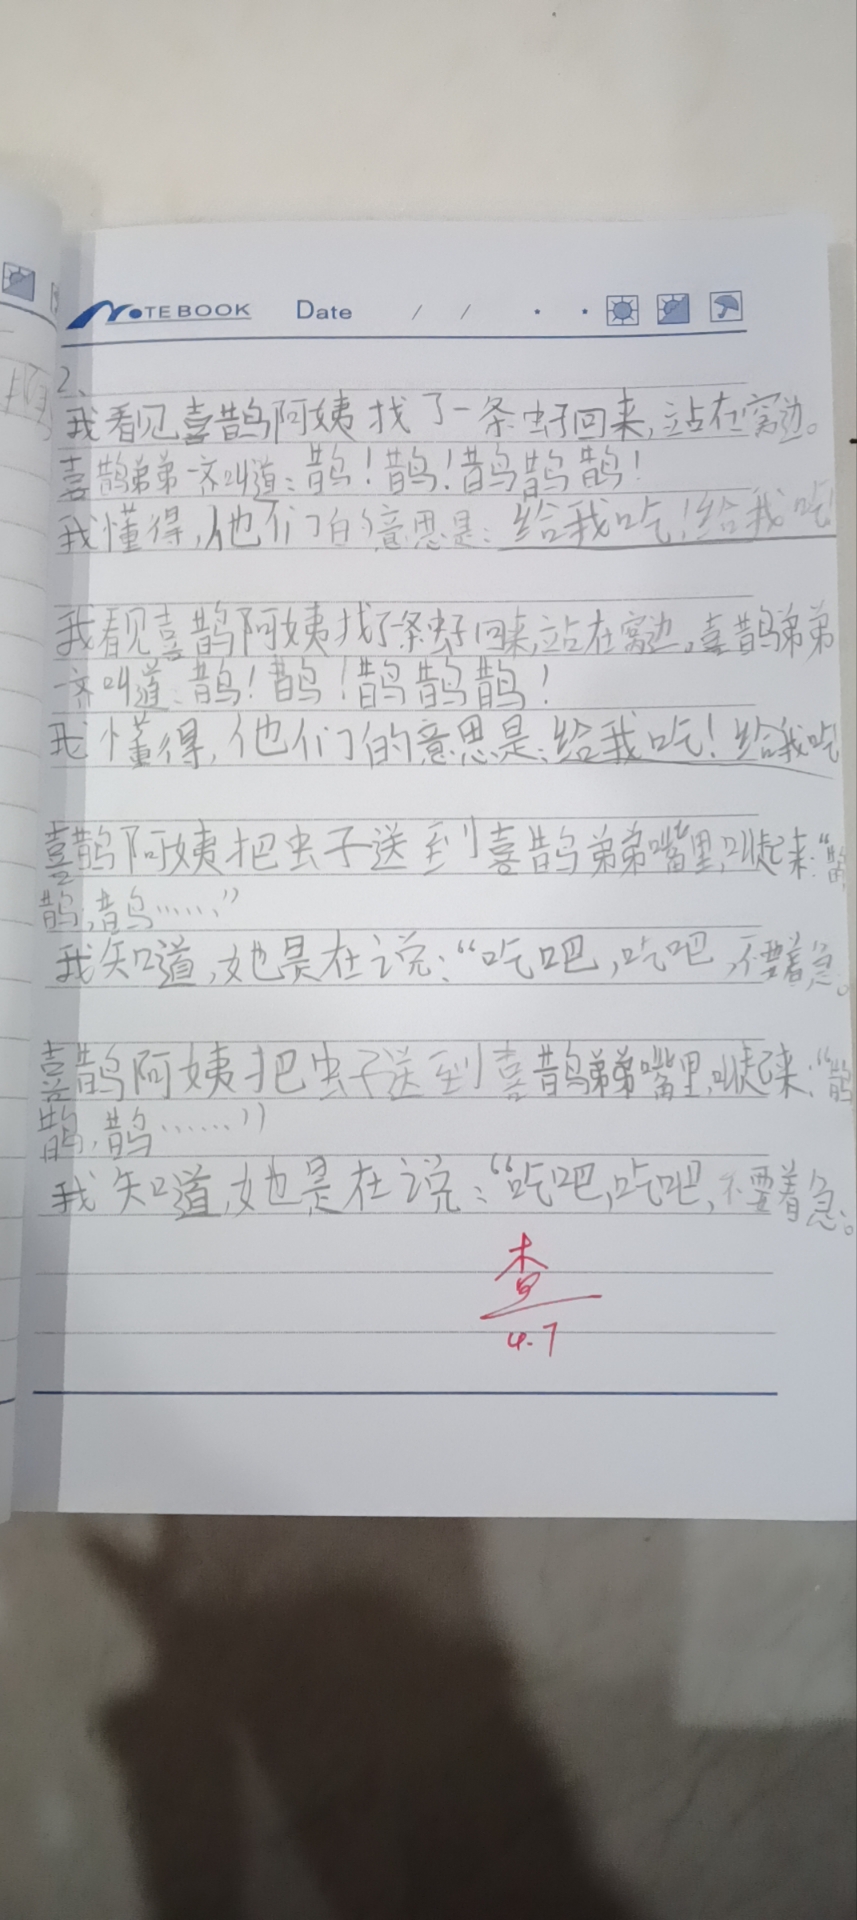 NOTEBOOK Date / /
2、
我看见喜鹊阿姨找了一条虫子回来,站在窝边。
喜鹊弟弟一齐叫道:鹊!鹊!鹊鹊鹊!
我懂得,他们的意思是:给我吃!给我吃!
我看见喜鹊阿姨找了条虫子回来,站在窝边。喜鹊弟弟
一齐叫道:鹊!鹊!鹊鹊鹊!
我懂得,他们的意思是:给我吃!给我吃
喜鹊阿姨把虫子送到喜鹊弟弟嘴里,叫起来:“鹊,
鹊,鹊……”
我知道,她是在说:“吃吧,吃吧,不要着急。
喜鹊阿姨把虫子送到喜鹊弟弟嘴里,叫起来:“鹊
鹊,鹊……”
我知道,她是在说:“吃吧,吃吧,不要着急。
查
4.7